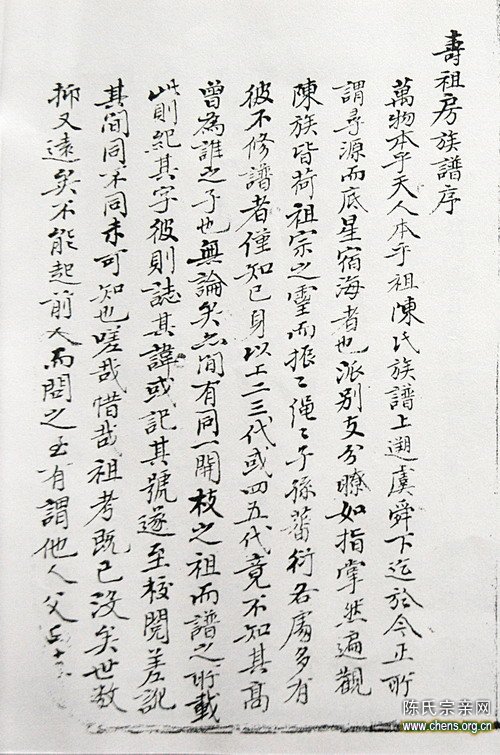 壽祖房族譜序
萬物本乎天人本乎祖陳氏族譜上遡虞舜下迄於今正所
謂尋源而底星宿海者也派別支分瞭如指掌然遍觀
陳族皆荷祖宗之靈而振〻繩〻子孫蕃衍各處多有
彼不修譜者僅知己身以上二三代或四五代竟不知其高
曾為誰之子也無論矣間有同一開枝之祖而譜之所載
此則紀其字彼則誌其諱或記其號遂至校閱差訛
其間同不同未可知也嗟哉惜哉祖考既已沒矣世数
抑又遠矣不能起前人而問之至有謂他人父
陈氏宗亲网
www.chens.org.cn